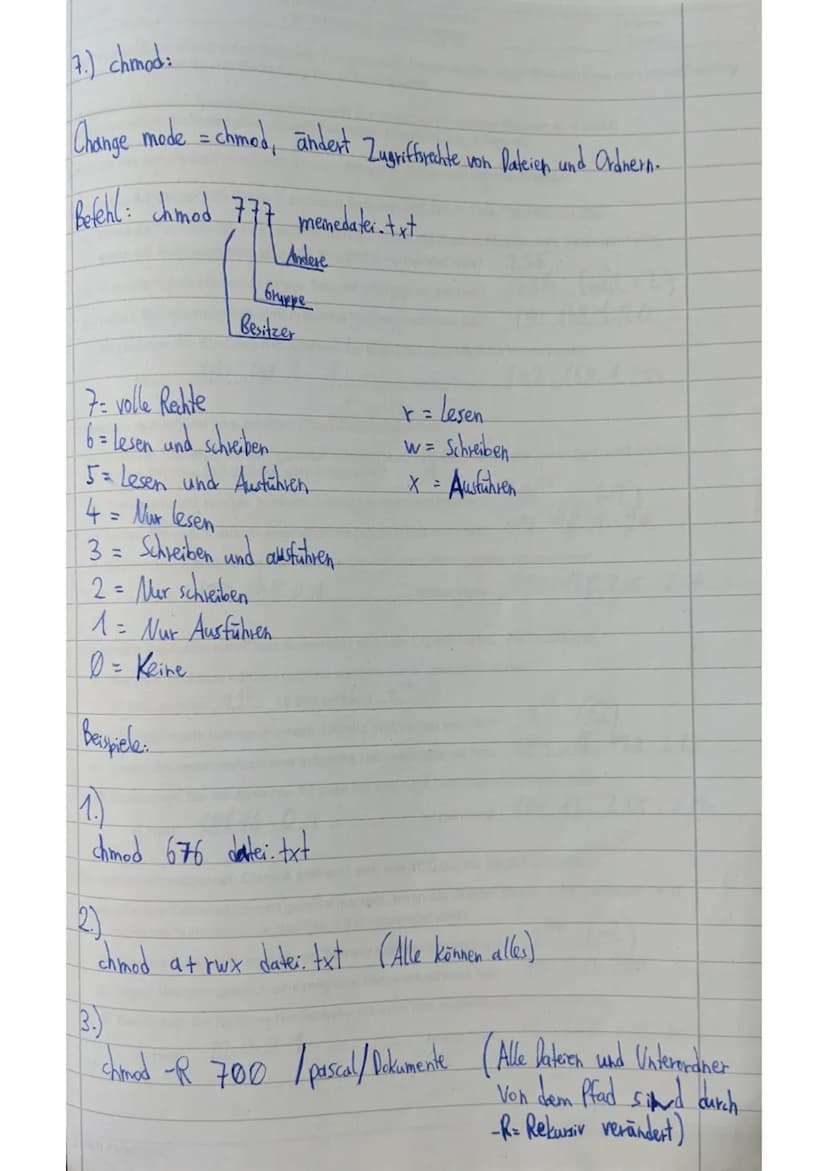 7.) chmod:
Change mode = chmod, ändert Zugriffsrechte von Dateien und Ordnern.
Befehl: chmod 777 meinedatei.txt
Andere
Gruppe
Besitzer
7= volle Rechte
r = Lesen
6 = Lesen und schreiben
w = Schreiben
5 = Lesen und Ausführen
x = Ausführen
4 = Nur lesen
3 = Schreiben und ausführen
2 = Nur schreiben
1 = Nur Ausführen
0 = Keine
Beispiele:
1.)
chmod 676 datei.txt
2.)
chmod a+rwx datei.txt (Alle können alles)
3.)
chmod -R 700 /pascal/Dokumente (Alle Dateien und Unterordner
von dem Pfad sind durch
-R= Rekursiv verändert)